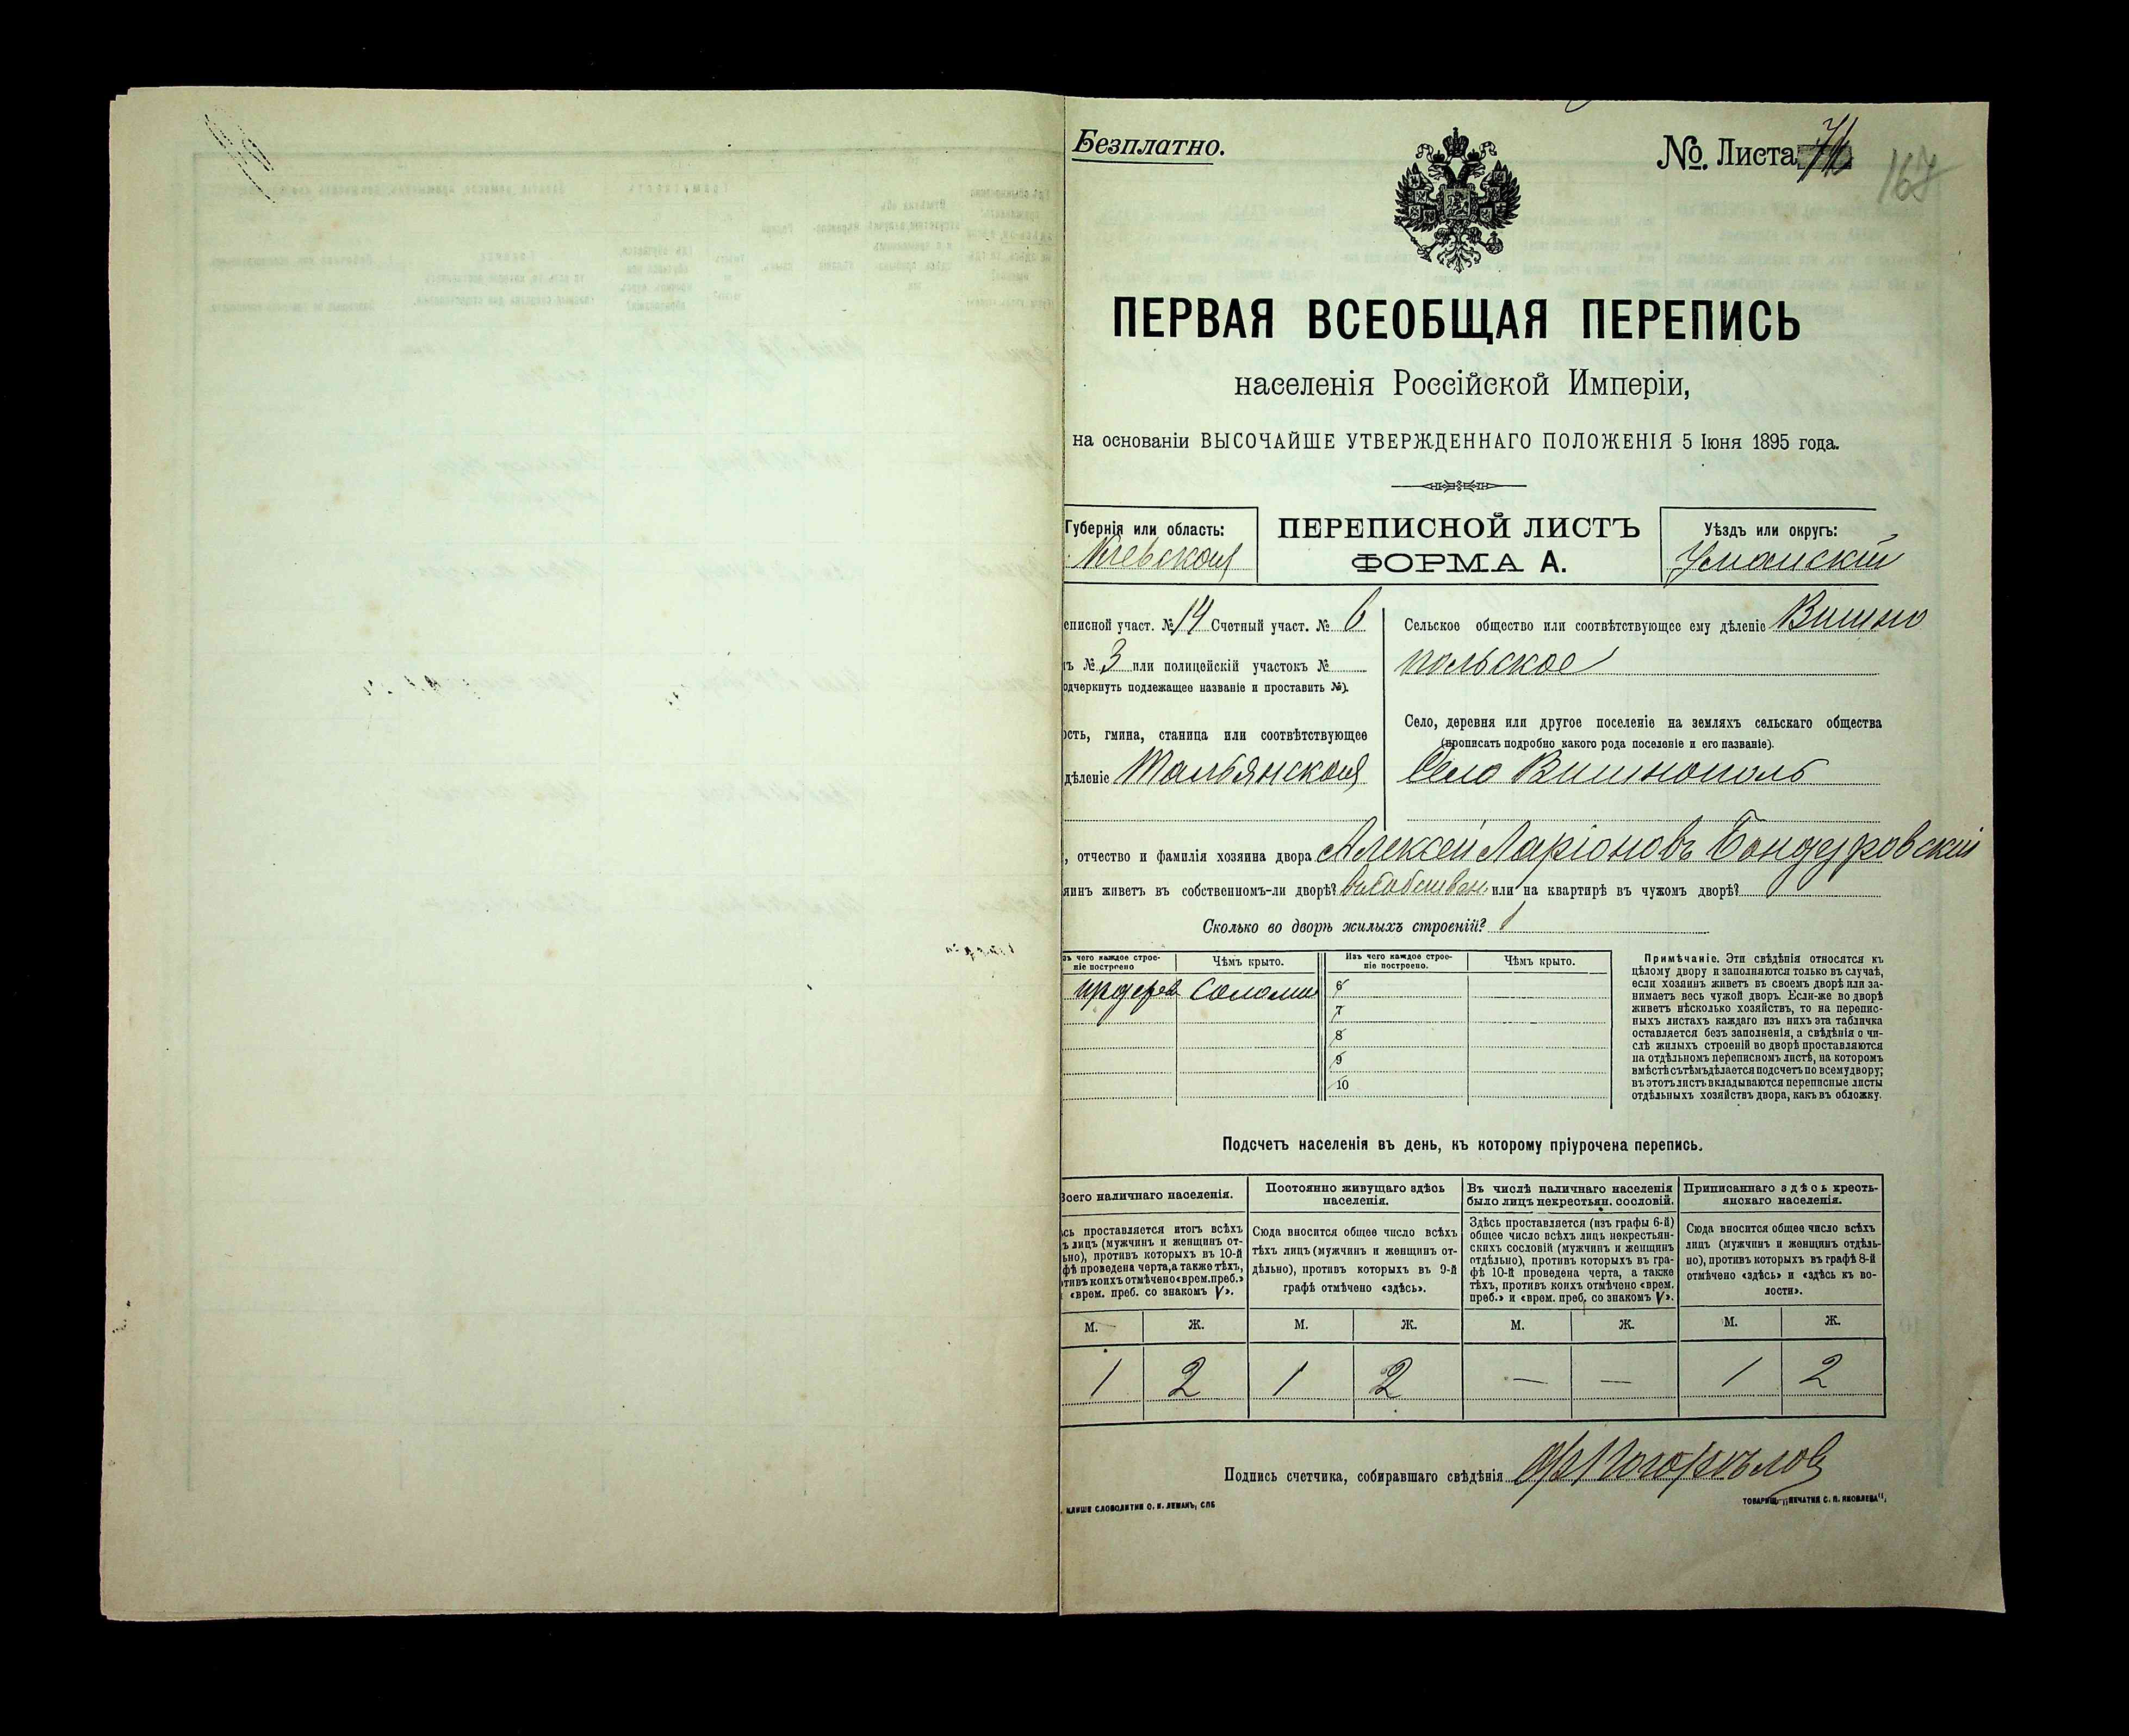 Безплатно.
№ Листа 71
167
ПЕРВАЯ ВСЕОБЩАЯ ПЕРЕПИСЬ
населенія Россійской Имперіи,
на основаніи ВЫСОЧАЙШЕ УТВЕРЖДЕННАГО ПОЛОЖЕНІЯ 5 Іюня 1895 года.
Губернія или область:
Кіевская
ПЕРЕПИСНОЙ ЛИСТЪ
ФОРМА А.
Уѣздъ или округъ:
Уманскій
еписной участ. № 14 Счетный участ. № 6
ъ № 3 или полицейскій участокъ №
одчеркнуть подлежащее названіе и проставить №).
ость, гмина, станица или соотвѣтствующее
дѣленіе Тальянская
Сельское общество или соотвѣтствующее ему дѣленіе Вишно
польское
Село, деревня или другое поселеніе на земляхъ сельскаго общества
(прописать подробно какого рода поселеніе и его названіе).
Село Вишнополь
, отчество и фамилія хозяина двора Алексей Ларіоновъ Бондуровскій
яинъ живетъ въ собственномъ-ли дворѣ? въ собствен. или на квартирѣ въ чужомъ дворѣ?
Сколько во дворѣ жилыхъ строеній? 1
зъ чего каждое строе-
ніе построено
Чѣмъ крыто.
Изъ чего каждое строе-
ніе построено.
Чѣмъ крыто.
Соломи
6
7
8
9
10
Примѣчаніе. Эти свѣдѣнія относятся къ
цѣлому двору и заполняются только въ случаѣ,
если хозяинъ живетъ въ своемъ дворѣ или за-
нимаетъ весь чужой дворъ. Если-же во дворѣ
живетъ нѣсколько хозяйствъ, то на перепис-
ныхъ листахъ каждаго изъ нихъ эта табличка
оставляется безъ заполненія, а свѣдѣнія о чи-
слѣ жилыхъ строеній во дворѣ проставляются
на отдѣльномъ переписномъ листѣ, на которомъ
вмѣстѣ съ тѣмъ дѣлается подсчетъ по всему двору;
въ этотъ листъ вкладываются переписные листы
отдѣльныхъ хозяйствъ двора, какъ въ обложку.
Подсчетъ населенія въ день, къ которому пріурочена перепись.
Всего наличнаго населенія.
Постоянно живущаго здѣсь
населенія.
Въ числѣ наличнаго населенія
было лицъ некрестьян. сословій.
Приписаннаго здѣсь кресть-
янскаго населенія.
сь проставляется итогъ всѣхъ
ъ лицъ (мужчинъ и женщинъ от-
ьно), противъ которыхъ въ 10-й
фѣ проведена черта, а также тѣхъ,
тивъ коихъ отмѣчено «врем. преб.»
«врем. преб. со знакомъ V».
Сюда вносится общее число всѣхъ
тѣхъ лицъ (мужчинъ и женщинъ от-
дѣльно), противъ которыхъ въ 9-й
графѣ отмѣчено «здѣсь».
Здѣсь проставляется (изъ графы 6-й)
общее число всѣхъ лицъ некрестьян-
скихъ сословій (мужчинъ и женщинъ
отдѣльно), противъ которыхъ въ гра-
фѣ 10-й проведена черта, а также
тѣхъ, противъ коихъ отмѣчено «врем.
преб.» и «врем. преб. со знакомъ V».
Сюда вносится общее число всѣхъ
лицъ (мужчинъ и женщинъ отдѣль-
но), противъ которыхъ въ графѣ 8-й
отмѣчено «здѣсь» и «здѣсь къ во-
лости».
М. Ж. М. Ж. М. Ж. М. Ж.
1 2 1 2 — — 1 2
Подпись счетчика, собиравшаго свѣдѣнія Погорѣлов
КЛИШЕ СЛОВОЛИТНИ О. И. ЛЕМАНЪ, СПБ
ТОВАРИЩ. „ПЕЧАТНЯ С. П. ЯКОВЛЕВА“.